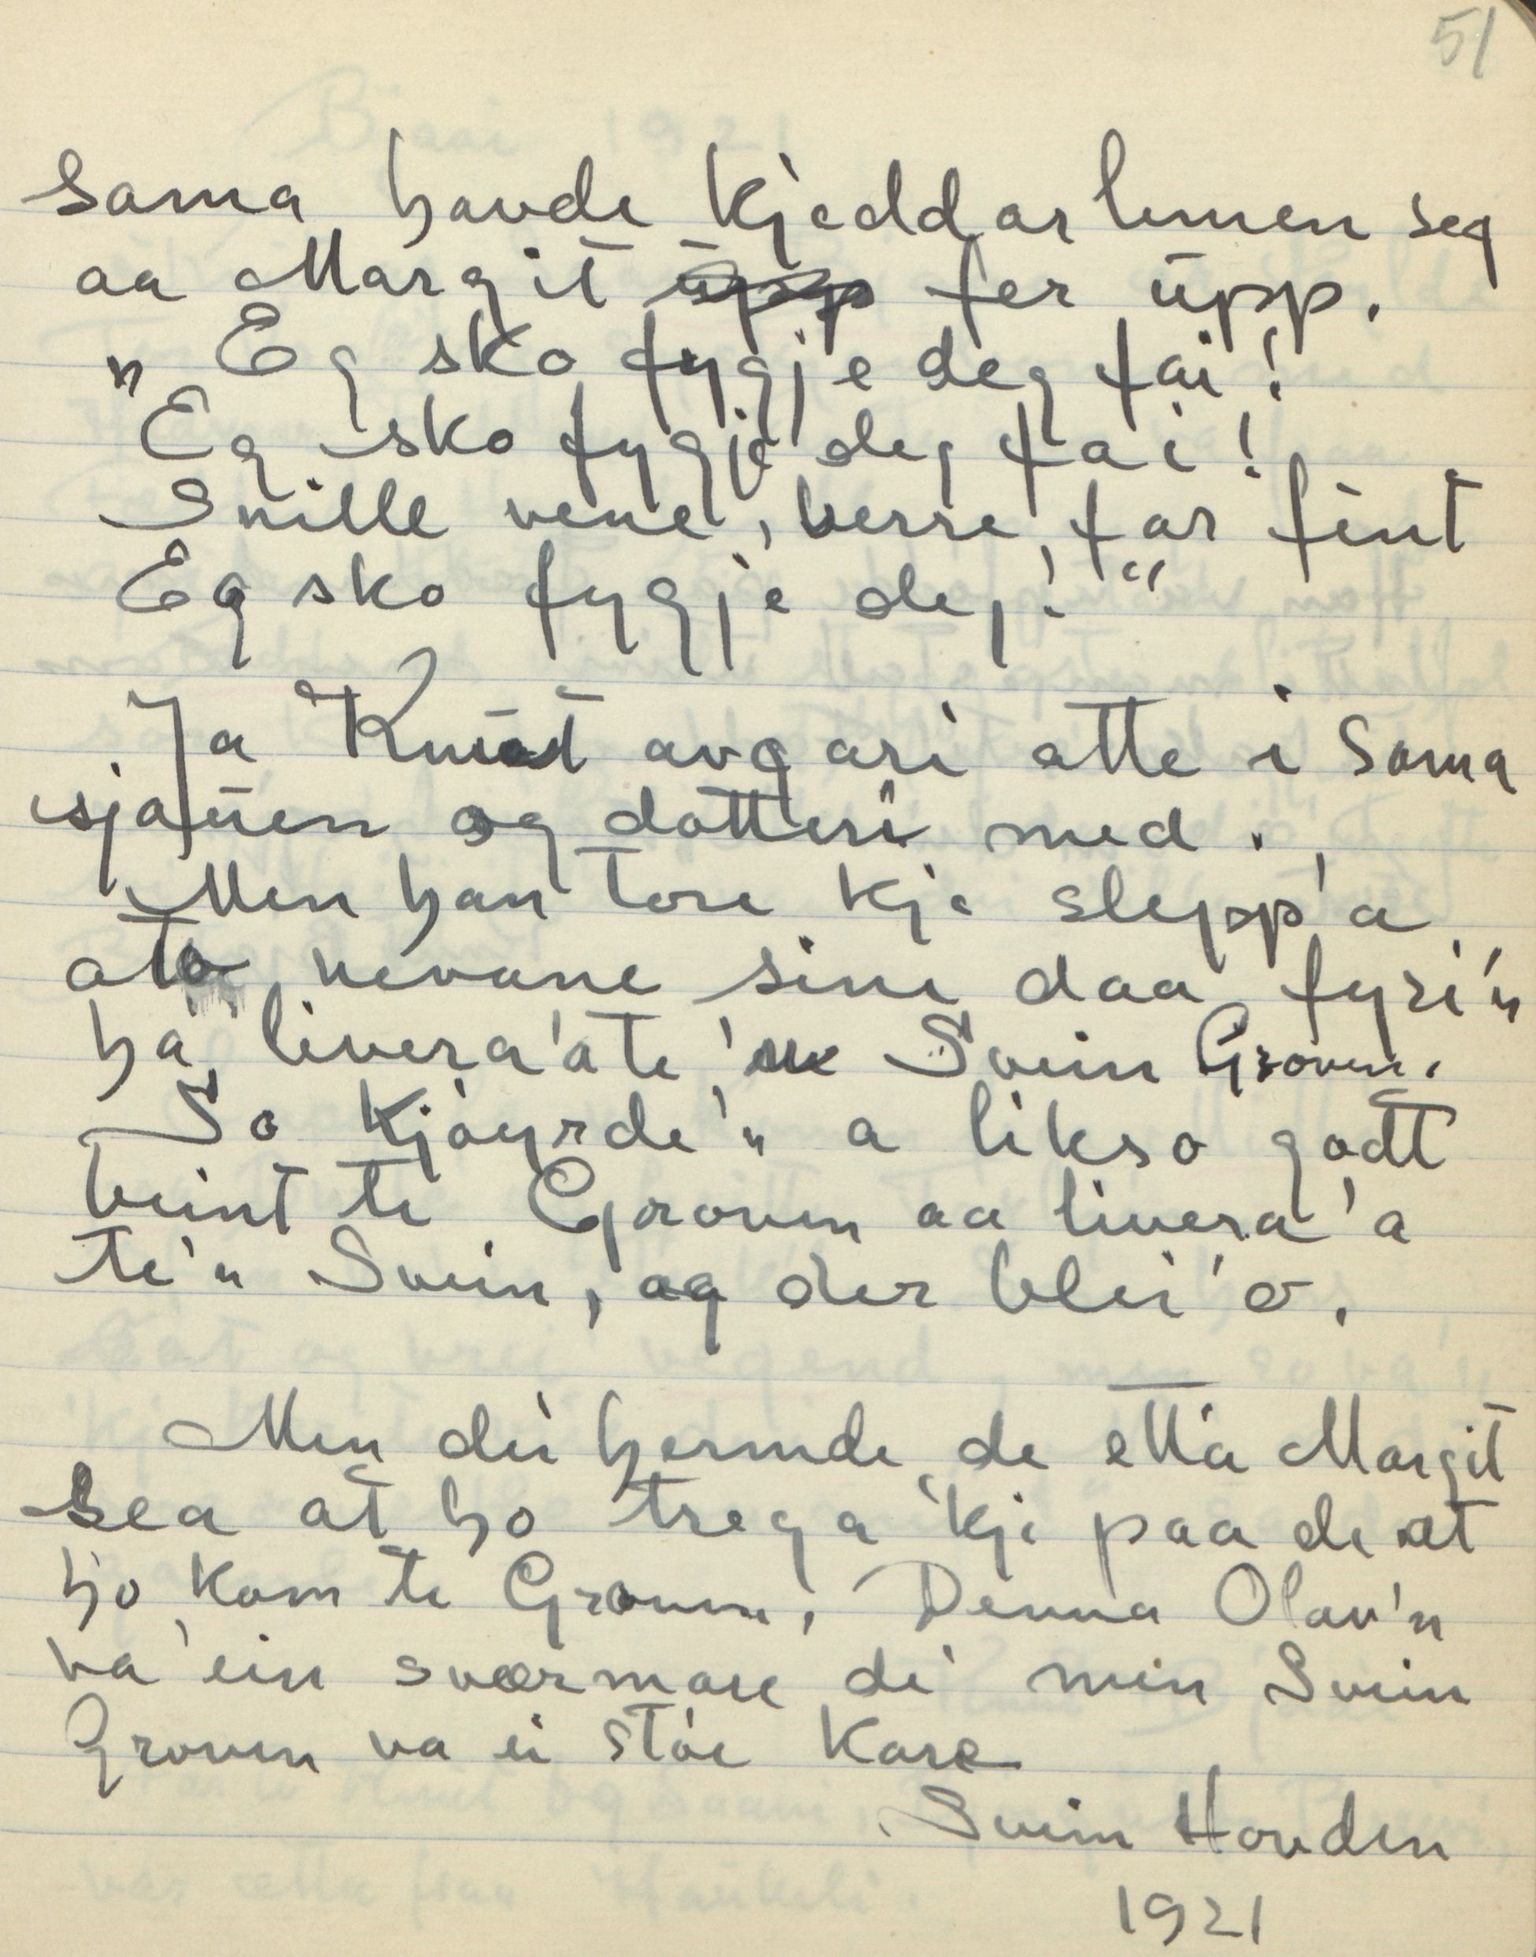 51
sama havde kjeddarlemen seg
aa Margit üpp fer üpp.
„Eg sko fygje deg fai!
Eg sko fygje deg fai!
Snille vene, berre, far fint
Eg sko fygje deg!“
Ja Knut avgari atte i sama
sjauen og dotteri med.
Men han tore kje slepp'a
ato nevane sine daa, fyri'n
ha livera'a te'n Svein Groven.
So kjøyrde'n a likso godt
beint te Groven aa livera'a
te'n Svein, og der blei'o.
Men dei hermde de ettå Margit
sea at ho trega 'kje paa de at
ho kom te Groven. Denna Olav'n
va ein sværmare de' men Svein
Groven va ei støe kare
Svein Hovden
1921